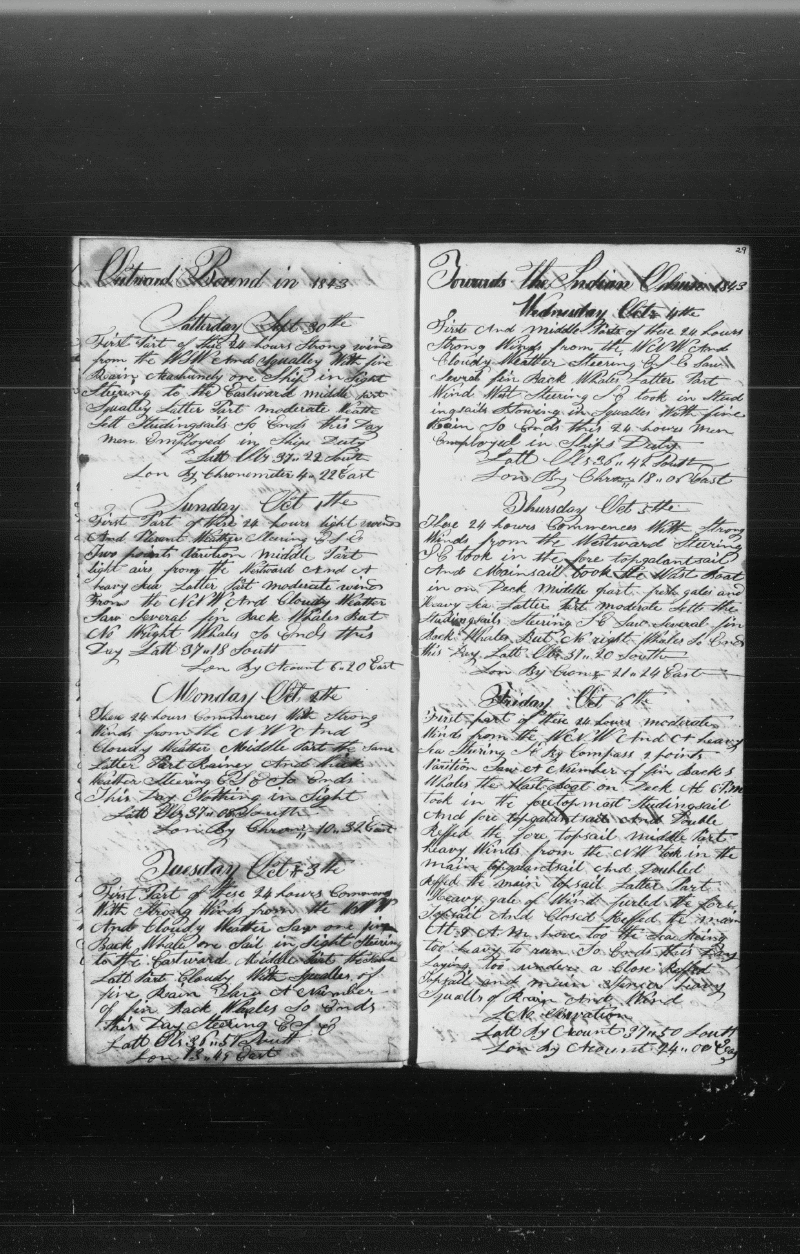 Outward Bound in 1843
Satterday Sept 30 the
First Part of these 24 hours Strong wind
from the WNW And Squalley With fine
Rain, one Ship in Sight
Steering to the Eastward middle part
Squalley Latter Part moderate Weath
Sett Studingsails So Ends this Day
men Employed in Ships Duty
Latt Obs 37" 22 South
Lon By Chronometer 4" 22 East
Sunday Oct 1 the
First Part of these 24 hours light winds
And Pleasant Weather Steering E S E
Two points Varition middle Part
light airs from the Westward And A
heavy Sea Latter Part moderate wind
From the NNW And Cloudy Weather
Saw Several fin Back Whales But
No Wright Whales So Ends this
Day Latt 37"18 South
Lon By Acount 6"20 East
Monday Oct 2 the
These 24 hours Commences With Strong
Winds from the N W And
Cloudy Weather Middle Part the Same
Latter Part Rainey And thick
Weather Steering E S E So Ends
This Day Nothing in Sight
Latt Obs 37"08 South
Lon By Chron" 10"32 East
Tuesday Oct 3 the
First Part of these 24 hours Commenc
With Strong Winds from the WNW
And Cloudy Weather Saw one fin
Back Whale one Sail in Sight Steering
to the Eastward Middle Part
Latt Part Cloudy With Squalles of
fine Rain Saw A Number
of fin Back Whales So Ends
this Day Steering E S E
Latt Obs 36"57 South
Lon 13"49 East
29
Towards the Indian Oshun 1843
Wednesday Oct 4 the
First And middle Parts of these 24 hours
Strong Winds from the WNW And
Cloudy Weather Steering E S E Saw
Several fin Back Whales Latter Part
Wind West Steering S E took in Stud
ingsails Blowing in Squalles With fine
Rain So Ends this 24 hours men
Employed in Ships Duty
Latt Obs 36"42 South
Lon By Chron" 18"06 East
Thursday Oct 5 the
These 24 hours Commences With Strong
Winds from the Westward Steering
S E took in the fore topgalantsail
And Mainsail took the Wast Boat
in on Deck Middle part fresh gales and
Heavy Sea Latter Part moderate Sett the
Studingsails Steering S E Saw Several fin
Back Whales But No right Whales So Ends
this Day Latt Obs 37"20 South
Lon By Cron" 21"24 East
Friday Oct 6 the
First part of these 24 hours moderate
Winds from the WNW And A heavy
Sea Sturing S E By Compass 2 points
Varition Saw A Number of fin Back
Whales the Wast Boat on Deck At 6 P.M
took in the foretopmast Studingsail
And fore topgalantsail And Double
Reffed the fore topsail middle Part
Heavy Winds from the N W took in the
main topgalantsail And Doubled
Reffed the main topsail Latter Part
Heavy gale of Wind furled the fore
Topsail And Closed Reffed the main
At 8 A.M. hove too the Sea being
too heavy to run So Ends this Day
Laying too under a Close Reffed
Topsail and main Spencer heavy
Squalls of Rain And Wind
No Observation
Latt By Acount 37"50 South
Lon By Acount 24"00 East